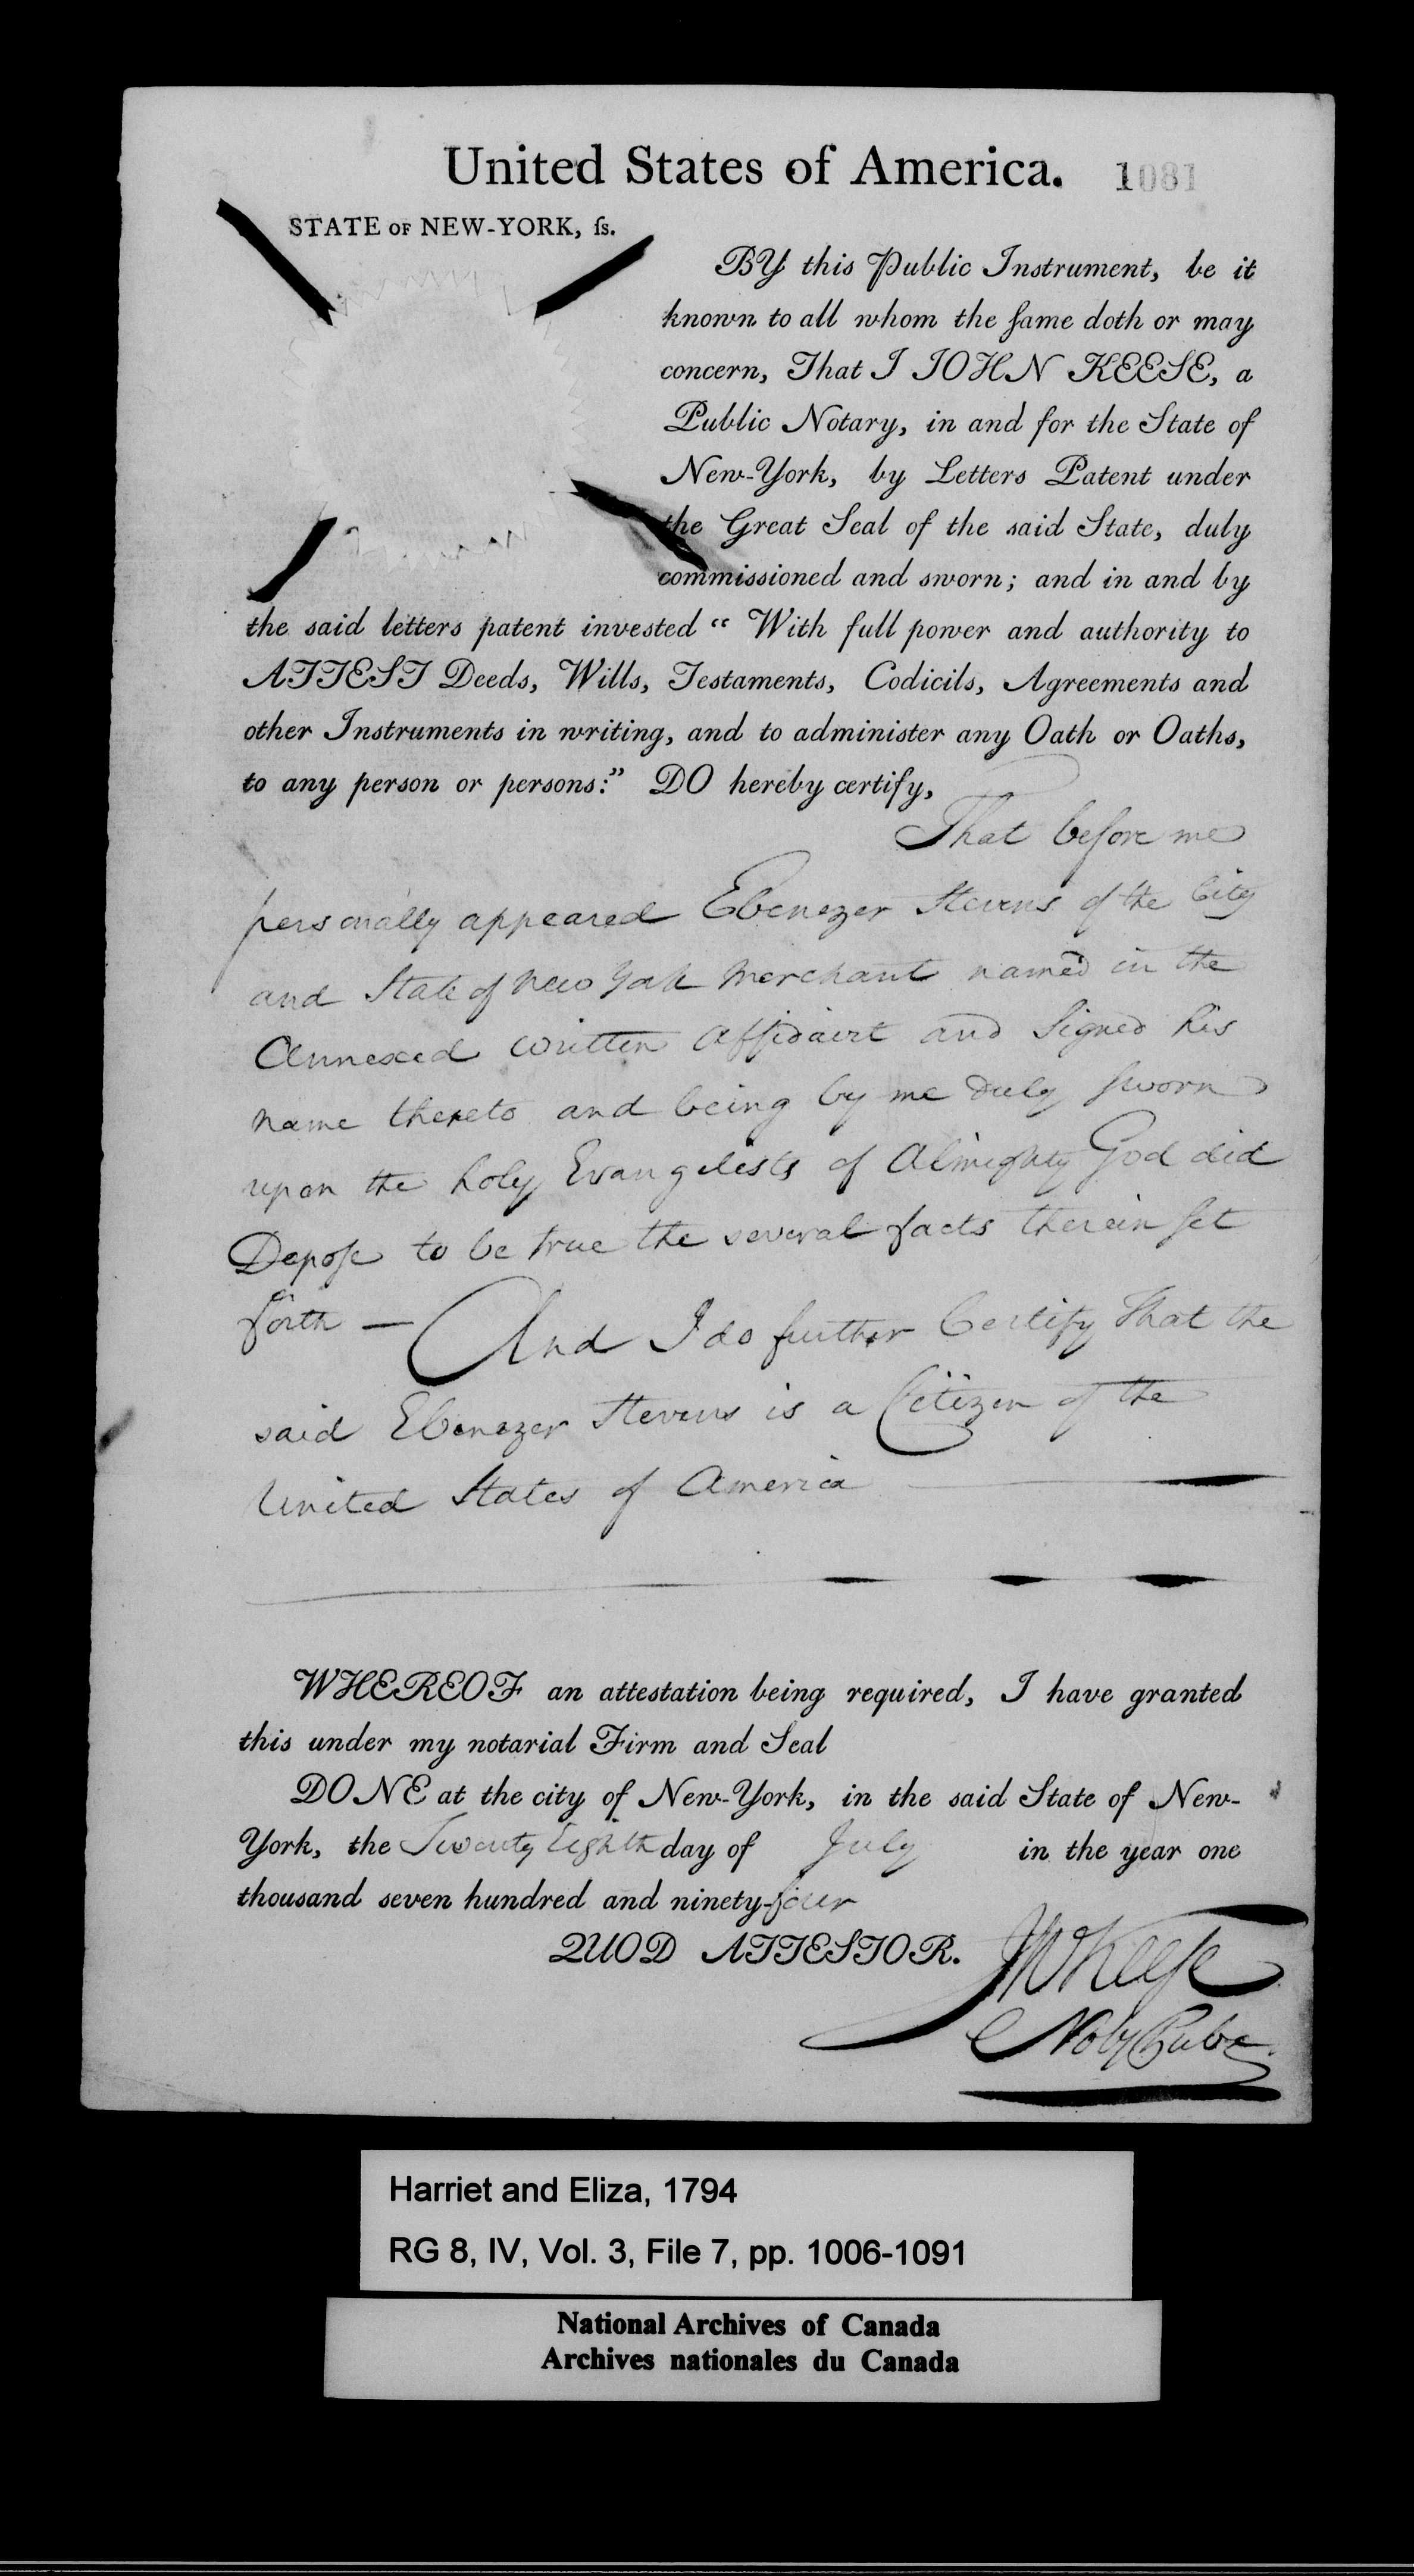 United States of America. 1081
STATE OF NEW-YORK, ſs.
BY this Public Instrument, be it
known to all whom the ſame doth or may
concern, That I IOHN KEESE, a
Public Notary, in and for the State of
New-York, by Letters Patent under
the Great Seal of the said State, duly
commissioned and sworn; and in and by
the said letters patent invested “ With full power and authority to
ATTEST Deeds, Wills, Testaments, Codicils, Agreements and
other Instruments in writing, and to administer any Oath or Oaths,
to any person or persons:” DO hereby certify,
That before me
personally appeared Ebenezer Stevens of the City
and State of New York Merchant named in the
Annexed written Affidavit and Signed his
name thereto and being by me duly sworn
upon the holy Evangelists of Almighty God did
Depoſe to be true the several facts therein set
forth — And I do further Certify That the
said Ebenezer Stevens is a Citizen of the
United States of America
WHEREOF an attestation being required, I have granted
this under my notarial Firm and Seal
DONE at the city of New-York, in the said State of New-
York, the Twenty Eighth day of July in the year one
thousand seven hundred and ninety-four
QUOD ATTESTOR. Keeſe
Noty Pube
Harriet and Eliza, 1794
RG 8, IV, Vol. 3, File 7, pp. 1006-1091
National Archives of Canada
Archives nationales du Canada